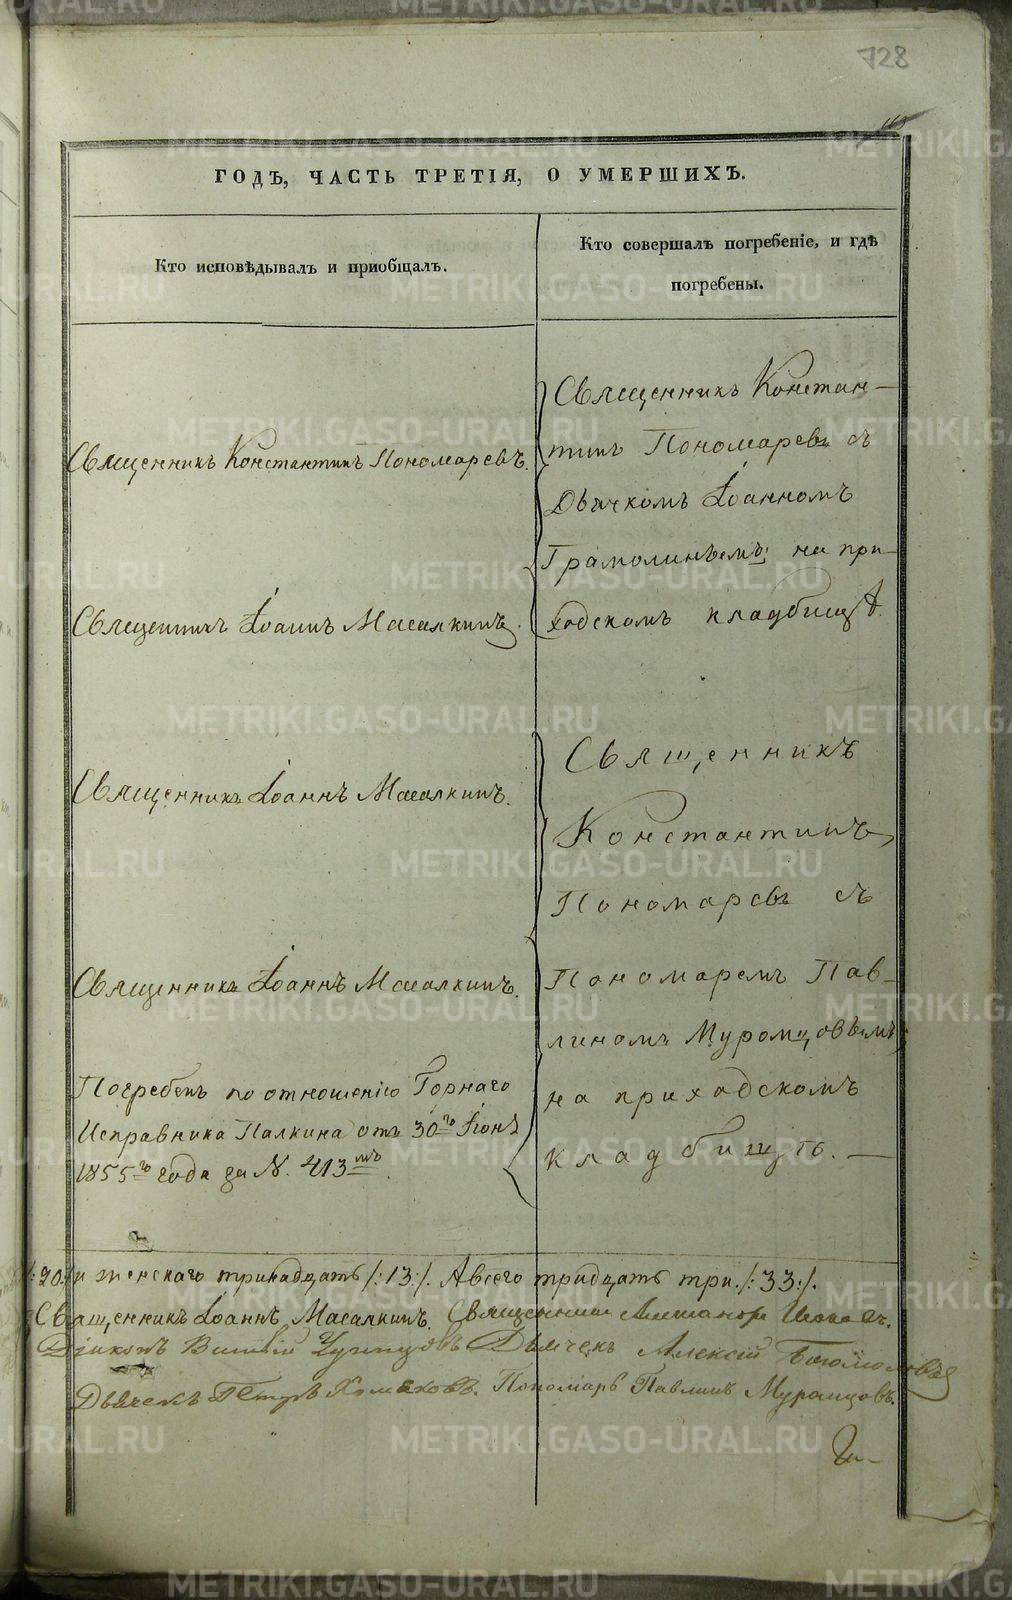 728
ГОДЪ, ЧАСТЬ ТРЕТІЯ, О УМЕРШИХЪ.
Кто исповѣдывалъ и пріобщалъ.
Кто совершалъ погребеніе, и гдѣ
погребены.
Священникъ Константинъ Пономаревъ.
Священникъ Іоаннъ Масалкинъ.
Священникъ Іоаннъ Масалкинъ.
Священникъ Іоаннъ Масалкинъ.
Погребенъ по отношенію Горнаго
Исправника Палкина отъ 30го Іюня
1855го года за N. 413мъ
Священникъ Констан-
тинъ Пономаревъ съ
Дьячкомъ Іоанномъ
на при-
ходскомъ кладбищѣ.
Священникъ
Константинъ
Пономаревъ съ
Пономаремъ Пав-
линомъ Муромцовымъ
на приходскомъ
кладбищѣ.
/:20:/ и женскаго тринадцать /:13:/. А всего тридцать три /:33:/.
Священникъ Іоаннъ Масалкинъ. Священникъ
Діаконъ Дьячекъ Алексій
Дьячекъ Петръ Хомяковъ. Пономарь Павлинъ Муромцовъ.
METRIKI.GASO-URAL.RU